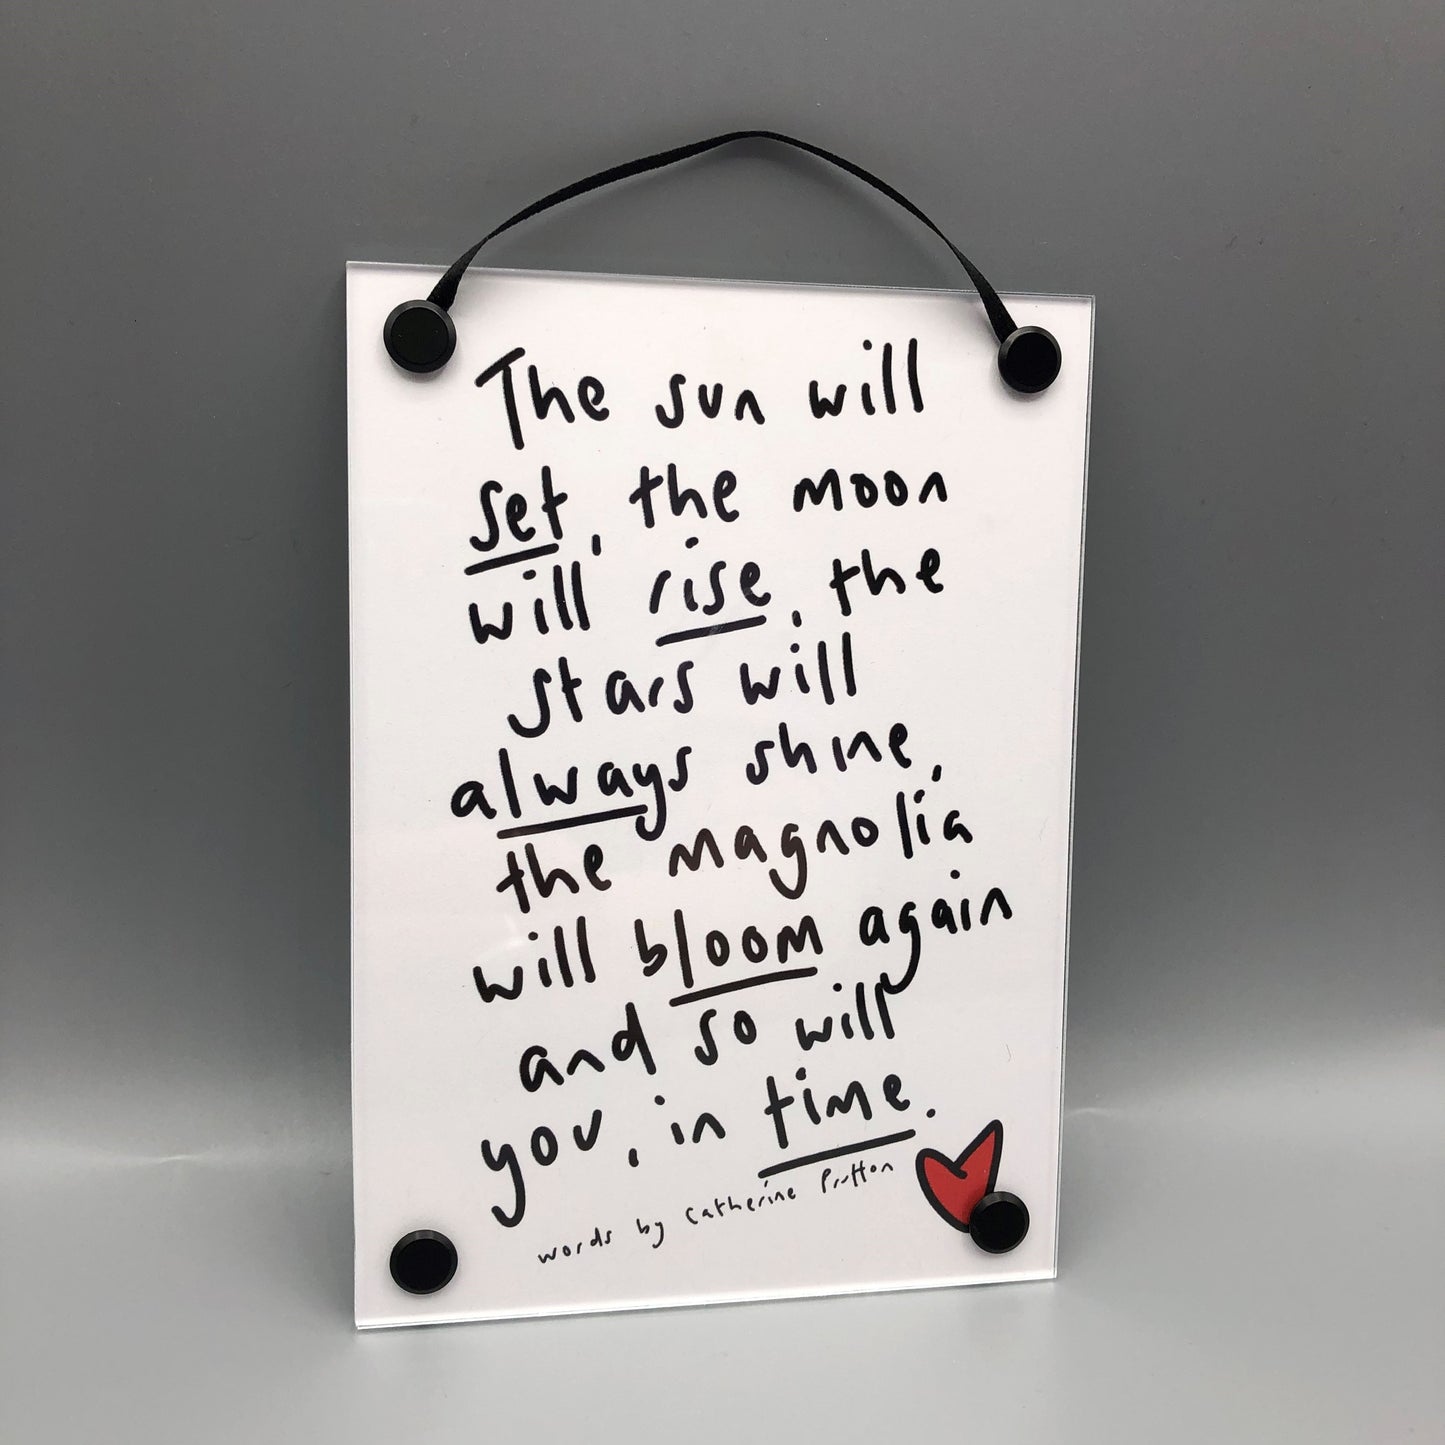 The sun will
set, the moon
will rise, the
stars will
always shine,
the magnolia
will bloom again
and so will
you, in time.
words by Catherine Prutton